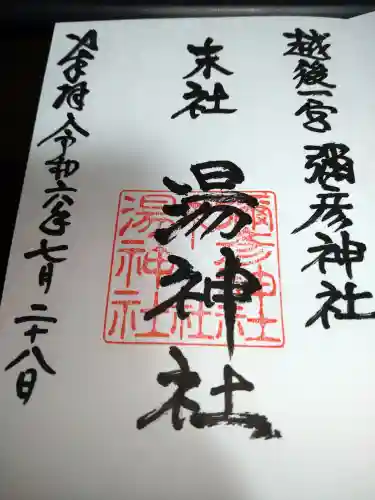 越後一宮 彌彦神社
末社
湯神社
参拝 令和六年七月二十八日
彌彦神社
末社
湯神社